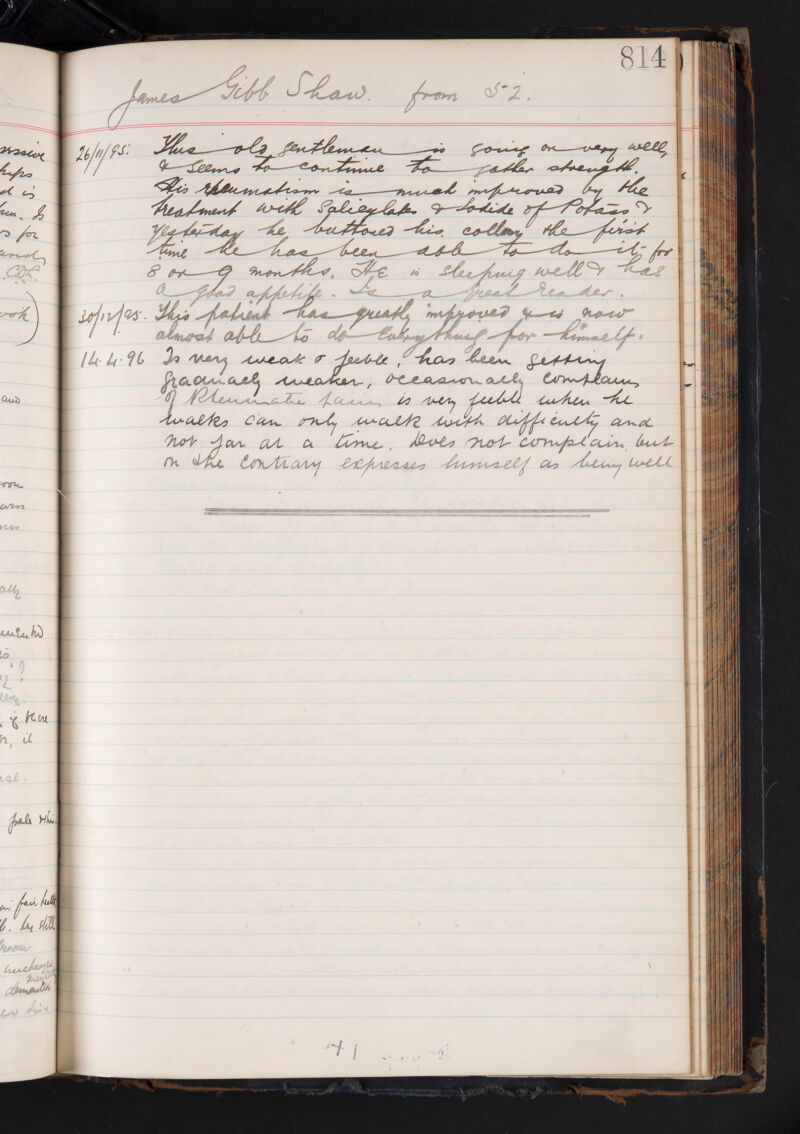 814
James Gibb Shaw. from 52.
26/11/95. This old gentleman is going on very well,
& seems to continue to gather strength.
His rheumatism is much improved by the
treatment with Salicylates & Iodide of Potass &
yesterday he buttoned his collar, the first
time he has been able to do it for
8 or 9 months. He is sleeping well & has
a good appetite. Is a great reader.
30/12/95. This patient has greatly improved & is now
almost able to do everything for himself.
14.4.96 Is very weak & feeble, has been getting
gradually weaker, occasionally complains
of Rheumatic pains, is very feeble when he
walks can only walk with difficulty and
not far at a time. Does not complain but
on the contrary expresses himself as being well